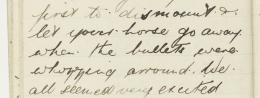 first to dismount &
let your horse go away
when the bullets were
whopping arround. We
all seemed very excited